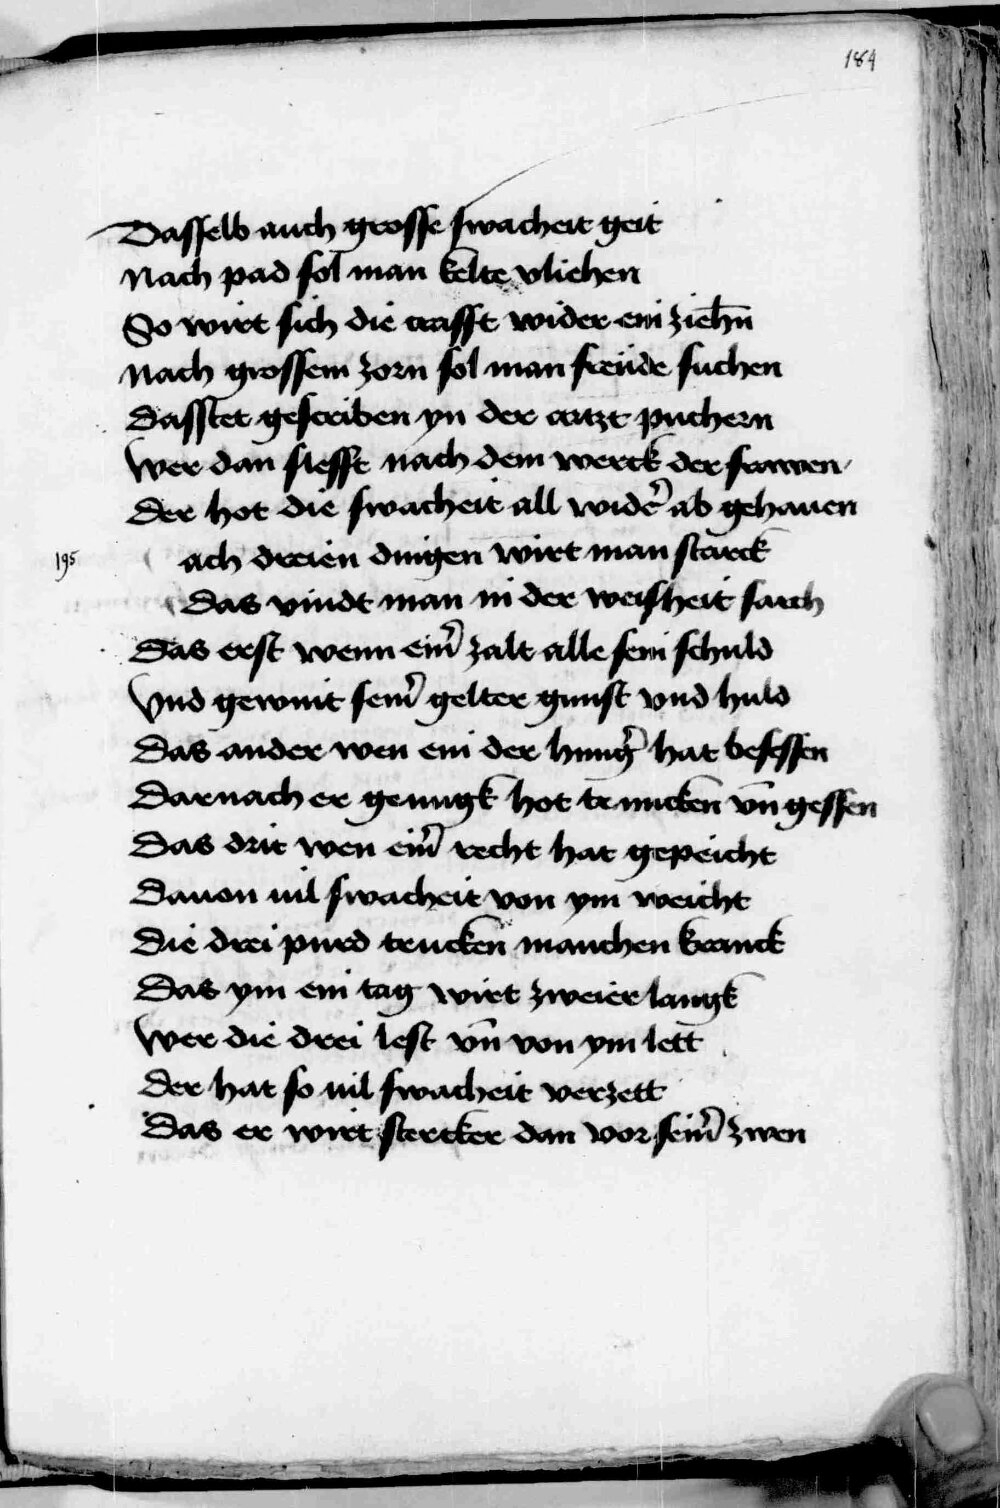 184
Dasselb auch grosse swacheit geit
Nach pad sol man kelte vliehen
So wirt sich die crafft wider ein ziehn̄
Nach grossem zorn sol man freüde suchen
Dasstet gescriben yn der artzt puchern
Wer dan slefft nach dem werck der frawen
Der hot die swacheit all wider̄ ab gehauen
195 ach dreien dingen wirt man starck
Das vindt man in der weisheit sarch
Das erst wenn einr̄ zalt alle sein schuld
Vnd gewint seinr̄ gelter gunst vnd huld
Das ander wen ein der hungr̄ hat besessen
Darnach er genugk hot truncken vn̄ gessen
Das drit wen einr̄ recht hat gepeicht
Dauon uil swacheit von ym weicht
Die drei purd trucken manchen kranck
Das ym ein tag wirt zweier langk
Wer die drei lest vn̄ von ym lett
Der hat so uil swacheit verzett
Das er wirt stercker dan vor seinr̄ zwen